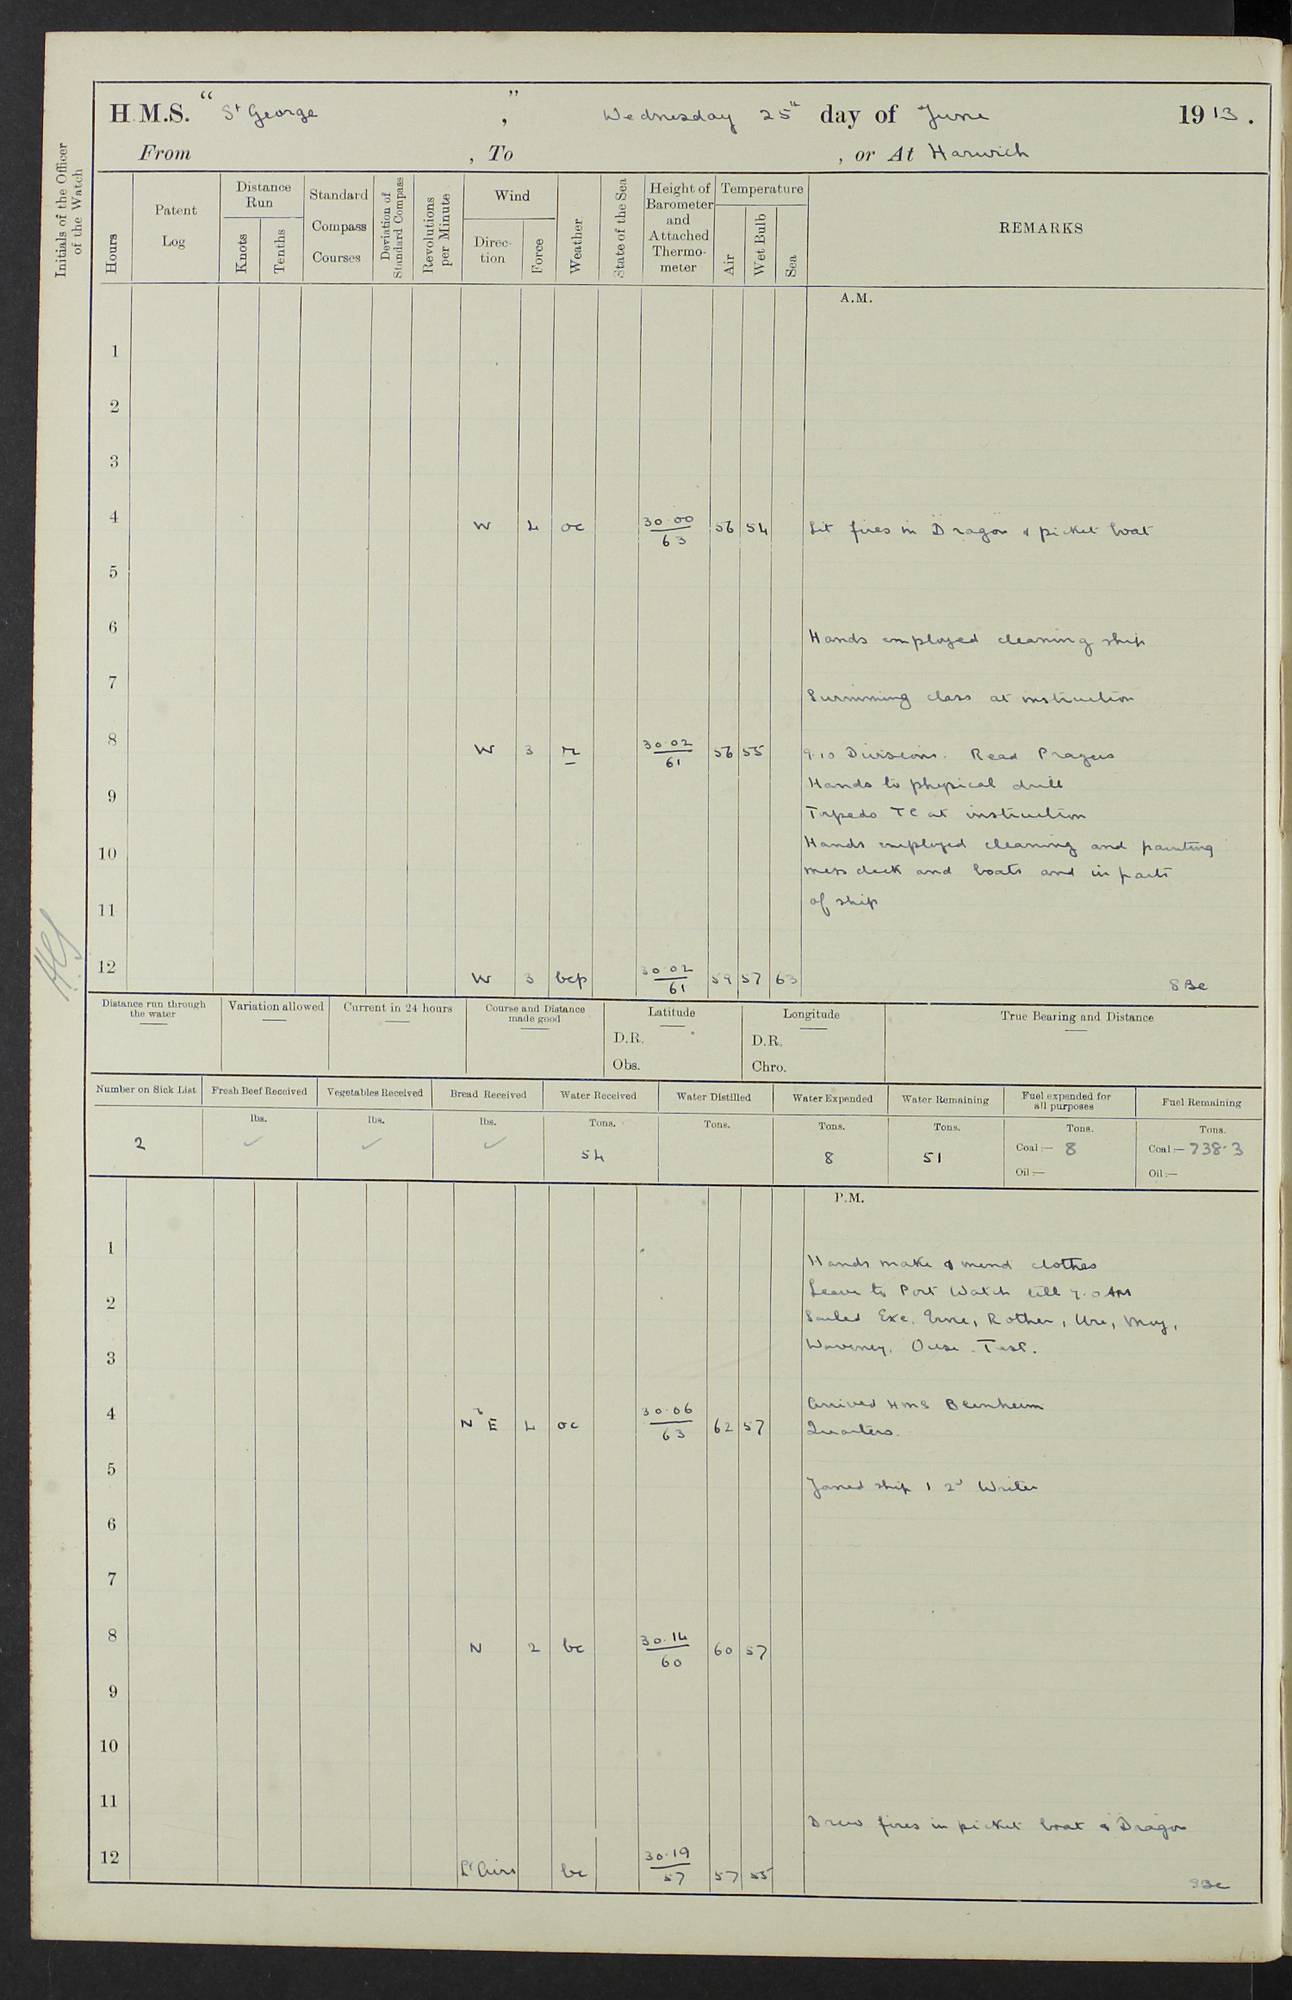 H.M.S. "St George", Wednesday 25th day of June 1913.
From , To , or At Harwich
Initials of the Officer of the Watch
Hours
Patent Log
Distance Run
Knots
Tenths
Standard Compass Courses
Deviation of Standard Compass
Revolutions per Minute
Wind
Direction
Force
Weather
State of the Sea
Height of Barometer and Attached Thermometer
Temperature
Air
Wet Bulb
Sea
REMARKS
A.M.
1
2
3
4 W 4 oc 30.00 63 56 54 Lit fires in Dragon & picket boat
5
6 Hands employed cleaning ship
7 Swimming class at instruction
8 W 3 r 30.02 61 56 55 9.10 Divisions. Read Prayers
Hands to physical drill
9
Torpedo TC at instruction
10 Hands employed cleaning and painting
mess deck and boats and in parts
11 of ship
12 W 3 bcp 30.02 61 59 57 63
Distance run through the water
Variation allowed
Current in 24 hours
Course and Distance made good
Latitude
D.R.
Obs.
Longitude
D.R.
Chro.
True Bearing and Distance
Number on Sick List
Fresh Beef Received
Vegetables Received
Bread Received
Water Received
Water Distilled
Water Expended
Water Remaining
Fuel expended for all purposes
Fuel Remaining
lbs. lbs. lbs. Tons. Tons. Tons. Tons. Tons. Tons.
2 ✓ ✓ ✓ 54 8 51 Coal:— 8 Coal:— 738.3
Oil:— Oil:—
P.M.
1 Hands make & mend clothes
Leave to Port Watch till 7.0 AM
2
Sailed Exe, Erne, Rother, Ure, Moy,
Waveney, Ouse. Test.
3
Arrived HMS Blenheim
4 NbE 4 oc 30.06 63 62 57 Quarters.
5 Joined ship 1 2d Writer
6
7
8 N 2 bc 30.14 60 60 57
9
10
11 Drew fires in picket boat & Dragon
12 Lt Airs bc 30.19 57 57 55